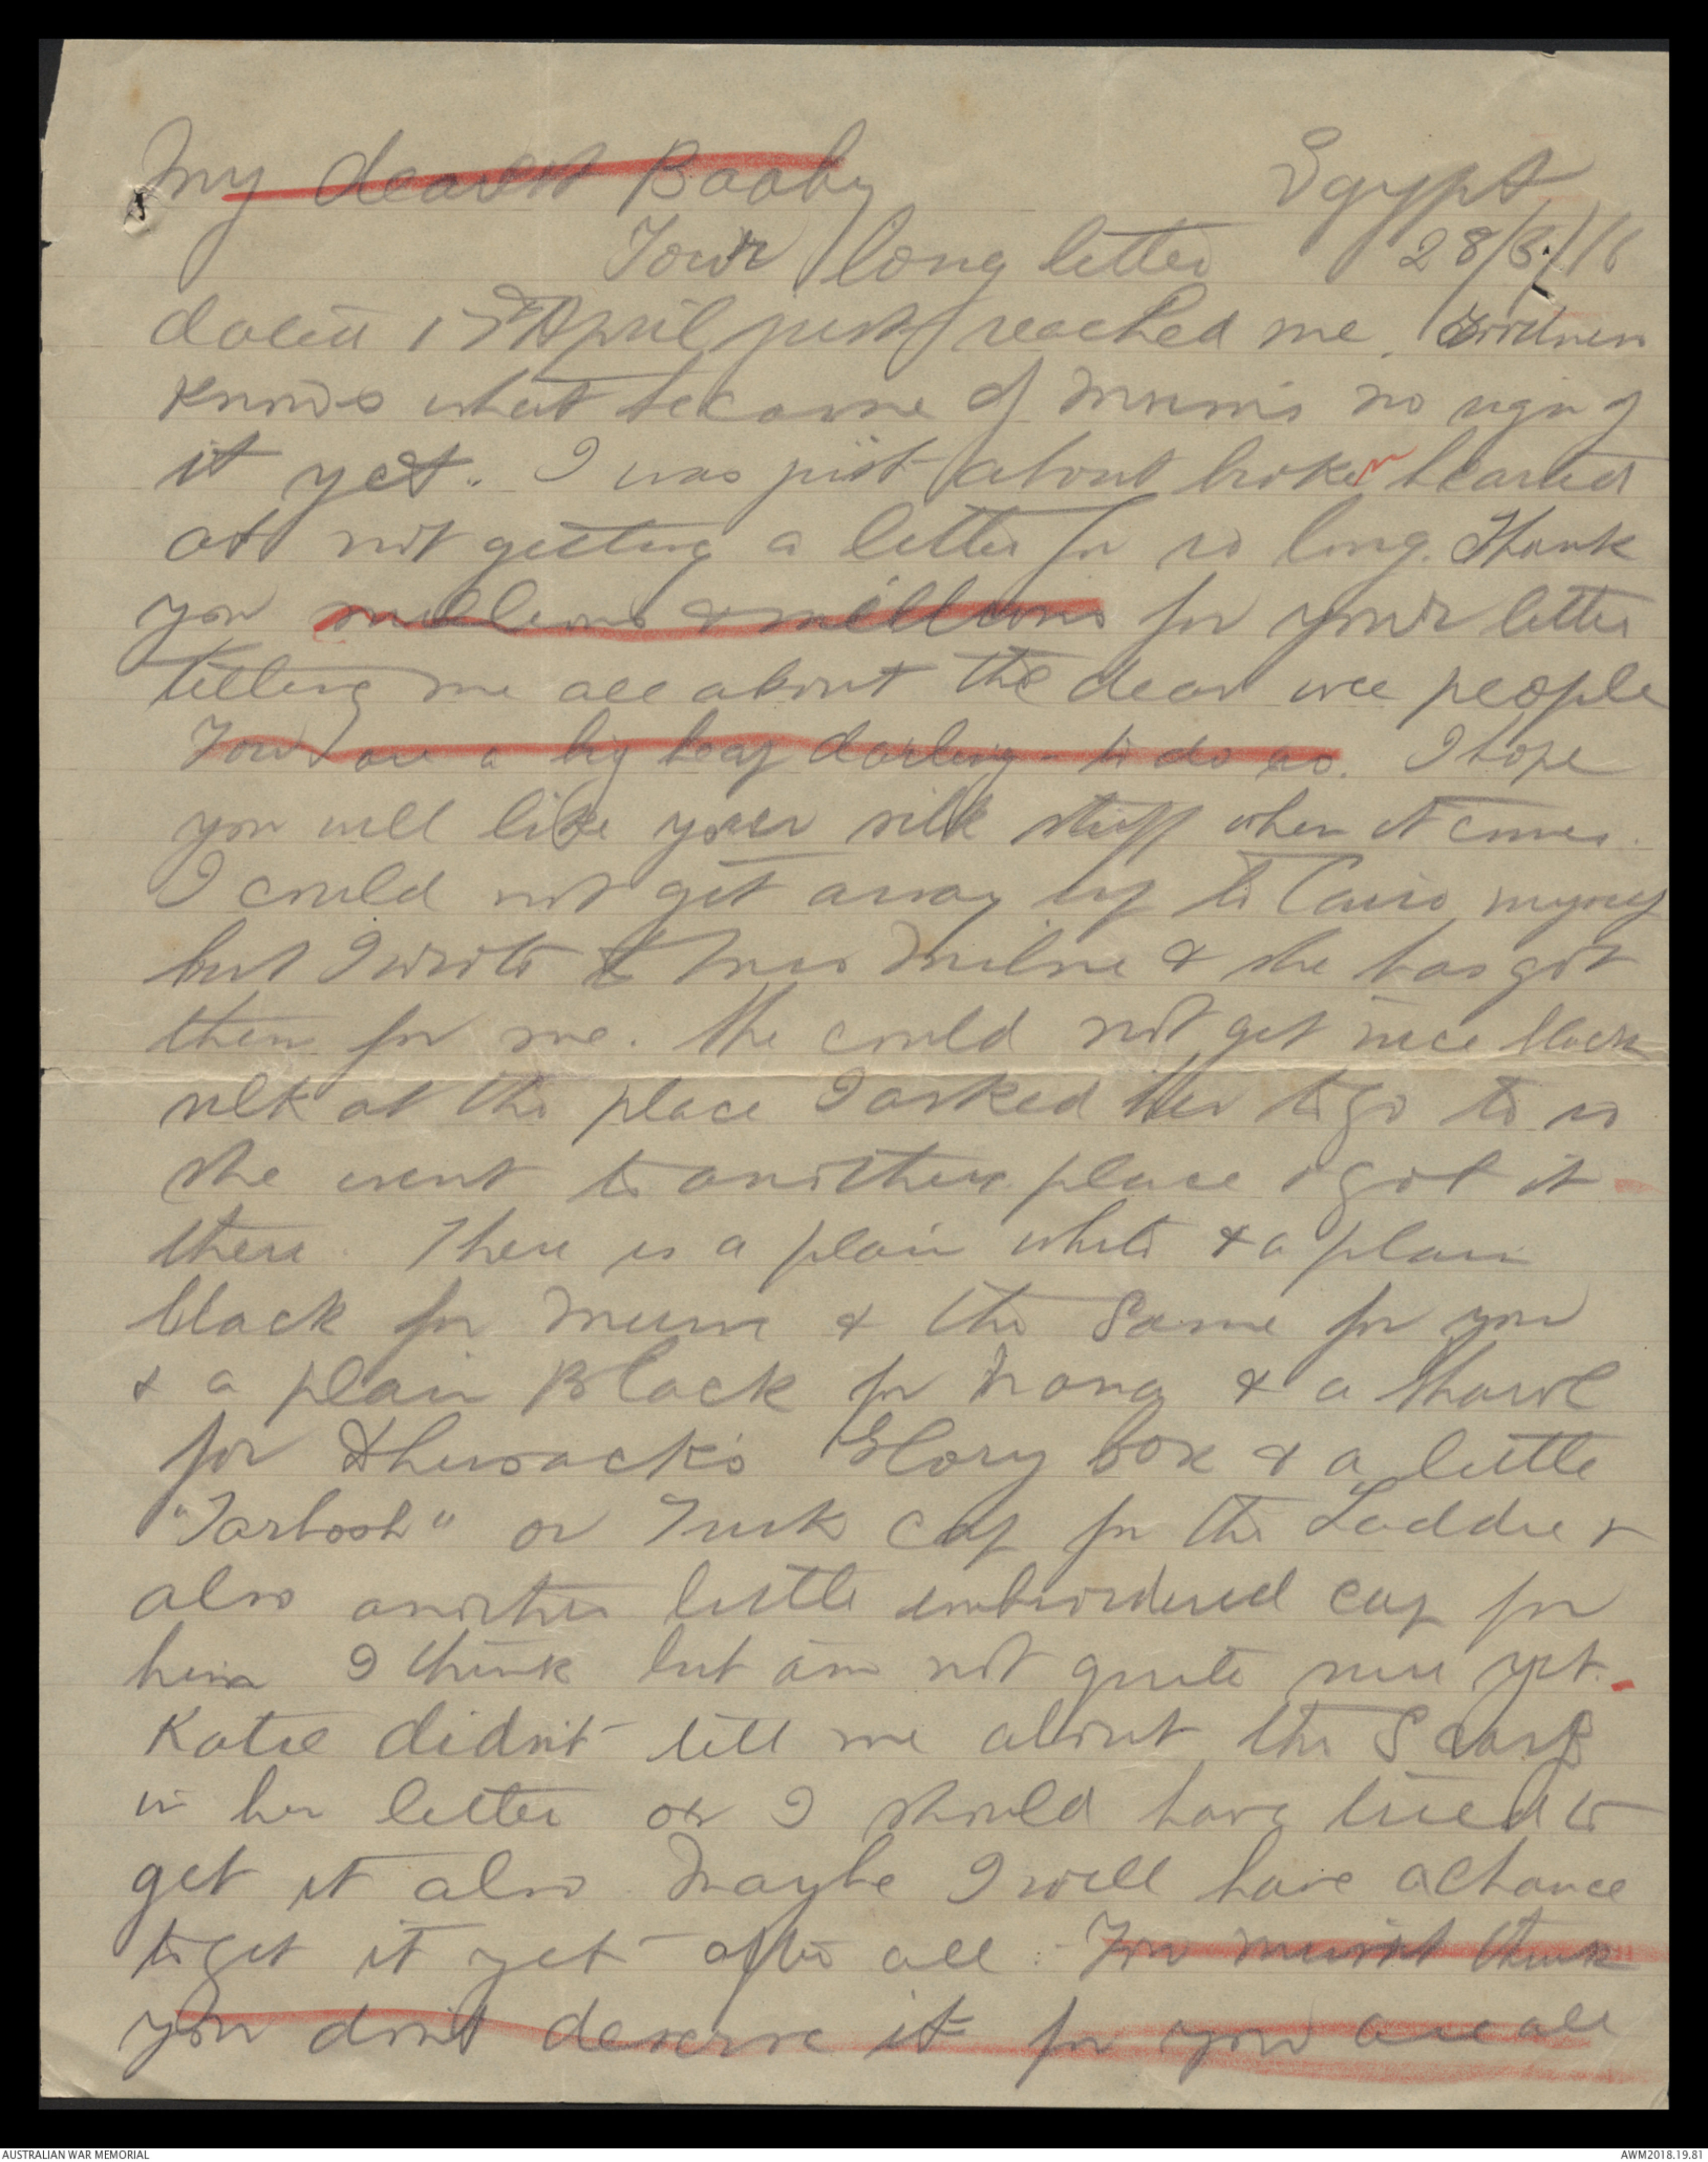 My dearest Baaby Egypt
Your long letter 28/5/16
dated 17th April just reached me. Goodness
knows what became of Mum's no sign of
it yet. I was just about broken hearted
at not getting a letter for so long. Thank
you millions & millions for your letter
telling me all about the dear wee people
You are a big heap darling - to do so. I hope
you will like your silk stuff when it comes.
I could not get away up to Cairo myself
but I wrote to Miss Milne & she has got
them for me. She could not get nice black
silk at the place I asked her to go to so
she went to another place & got it
there. There is a plain white & a plain
black for Mum & the Same for you
& a plain Black for Nana & a Shawl
for Glory box & a little
"Tarboosh" or Turk cap for the Laddie &
also another little embroidered cap for
him I think but am not quite sure yet.
Katie didn't tell me about the Scarf
in her letter or I should have tried to
get it also Maybe I will have a chance
to get it yet after all. You mustn't think
you don't deserve it for you are all
AUSTRALIAN WAR MEMORIAL AWM2018.19.81